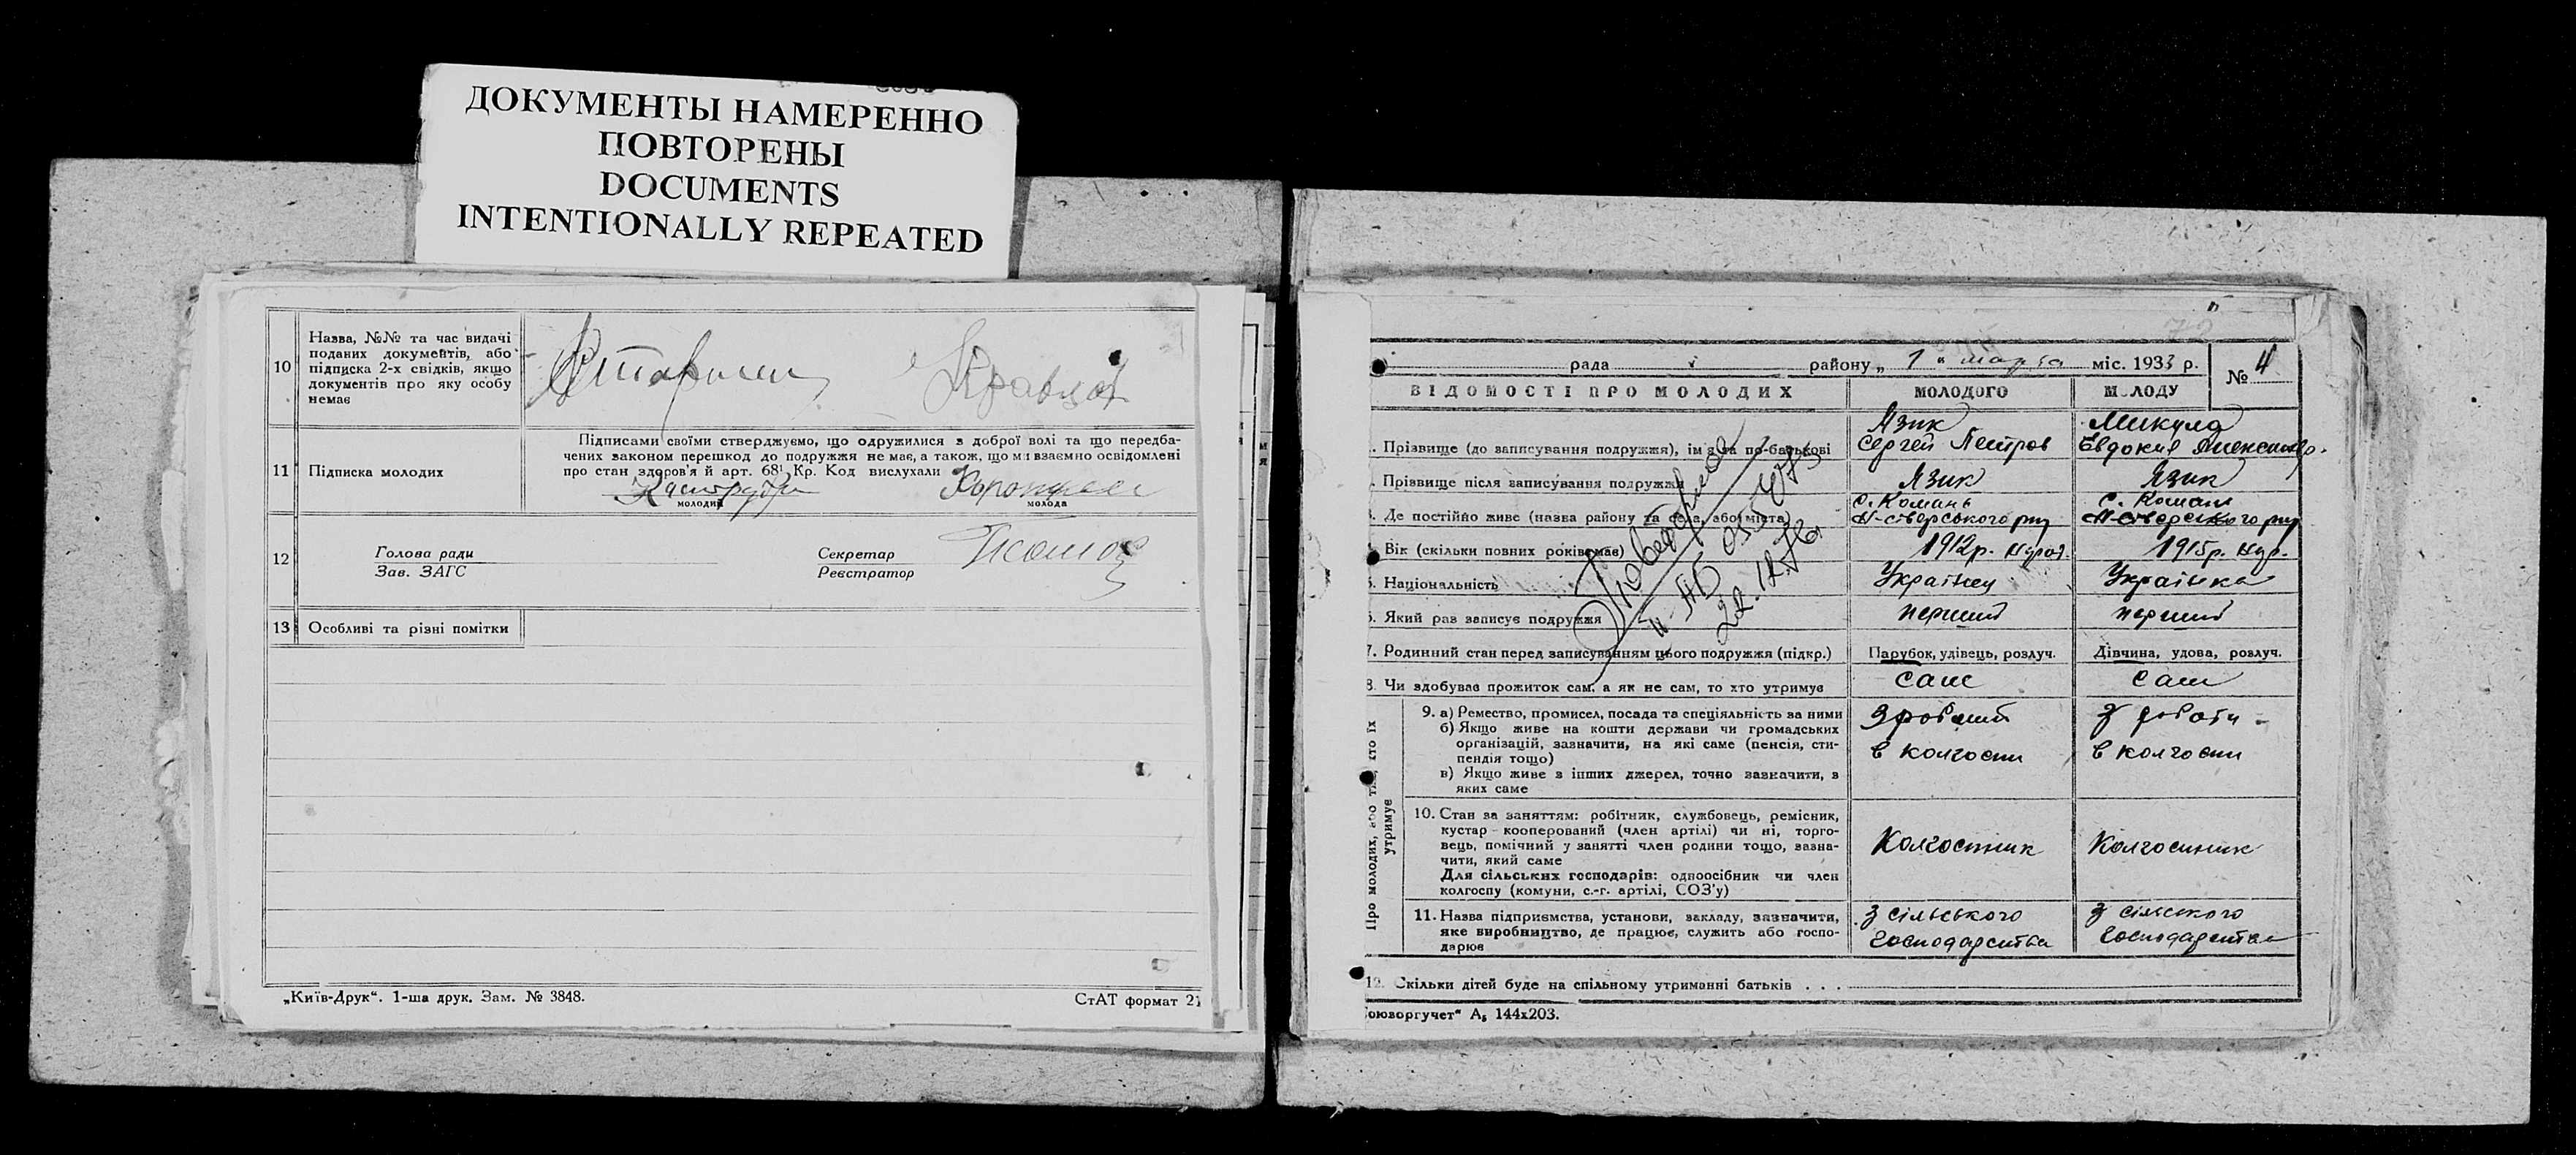 ДОКУМЕНТЫ НАМЕРЕННО
ПОВТОРЕНЫ
DOCUMENTS
INTENTIONALLY REPEATED
10 Назва, №№ та час видачі
поданих документів, або
підписка 2-х свідків, якщо
документів про яку особу
немає
11 Підписка молодих
Підписами своїми стверджуємо, що одружилися з доброї волі та що передба-
чених законом перешкод до подружжя не має, а також, що ми взаємно освідомлені
про стан здоров'я й арт. 68¹ Кр. Код вислухали
молодий молода
12 Голова ради Секретар
Зав. ЗАГС Реєстратор
13 Особливі та різні помітки
„Київ-Друк“. 1-ша друк. Зам. № 3848. СтАТ формат 21
72
рада району „ 1 “ марта міс. 1933 р. № 4
ВІДОМОСТІ ПРО МОЛОДИХ МОЛОДОГО МОЛОДУ
Прізвище (до записування подружжя), ім'я та по-батькові
Язик
Сергей Петров
Микула
Евдокия Александр.
Прізвище після записування подружжя Язик Язик
3. Де постійно живе (назва району та села, або міста)
с. Комань
Н-сіверського рну
с. Комань
Н-сіверського рну
Вік (скільки повних років має) 1912р. 1915р.
5. Національність Українец Українка
6. Який раз записує подружжя перший перший
7. Родинний стан перед записуванням цього подружжя (підкр.) Парубок, удівець, розлуч. Дівчина, удова, розлуч.
8. Чи здобуває прожиток сам, а як не сам, то хто утримує сам сам
22.12.76
Про молодих, або та, хто їх
утримує
9. а) Ремество, промисел, посада та спеціяльність за ними
б) Якщо живе на кошти держави чи громадських
організацій, зазначити, на які саме (пенсія, сти-
пендія тощо)
в) Якщо живе з інших джерел, точно зазначити, з
яких саме
в колгоспи
в колгоспи
10. Стан за заняттям: робітник, службовець, ремісник,
кустар - кооперований (член артілі) чи ні, торго-
вець, помічний у занятті член родини тощо, зазна-
чити, який саме
Для сільських господарів: одноосібник чи член
колгоспу (комуни, с.-г. артілі, СОЗ'у)
Колгоспник
Колгоспник
11. Назва підприємства, установи, закладу, зазначити,
яке виробництво, де працює, служить або госпо-
дарює
З сільського
господарства
З сільского
господарства
12. Скільки дітей буде на спільному утриманні батьків . . .
оюзоргучет“ А5 144x203.